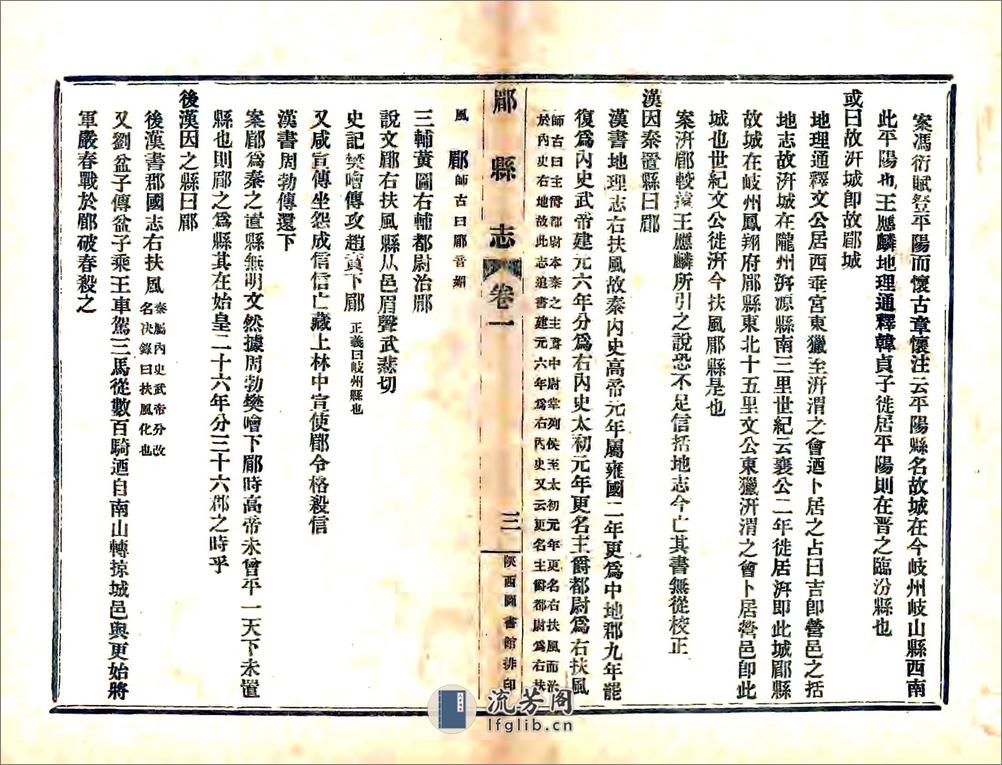 案馮衍賦登平陽而懷古章懷注云平陽縣名故城在今岐州岐山縣西南
此平陽也王應麟地理通釋韓貞子徙居平陽則在晉之臨汾縣也
或曰故汧城卽故郿城
地理通釋文公居西垂宮東獵至汧渭之會迺卜居之占曰吉卽營邑之括
地志故汧城在隴州汧源縣南三里世紀云襄公二年徙居汧卽此城郿縣
故城在岐州鳳翔府郿縣東北十五里文公東獵汧渭之會卜居營邑卽此
城也世紀文公徙汧今扶風郿縣是也
案汧郿較遠王應麟所引之說恐不足信括地志今亡其書無從校正
漢因秦置縣曰郿
漢書地理志右扶風故秦內史高帝元年屬雍國二年更爲中地郡九年罷
復爲內史武帝建元六年分爲右內史太初元年更名主爵都尉爲右扶風
師古曰主爵都尉本秦之主爵中尉掌列侯至太初元年更名右扶風而治
於內史右地故此志追書建元六年爲右內史又云更名主爵都尉爲右扶
郿縣志 卷一 三 陝西圖書館排印
風 郿 師古曰郿音媚
三輔黃圖右輔都尉治郿
說文郿右扶風縣从邑眉聲武悲切
史記樊噲傳攻趙賁下郿 正義曰岐州縣也
又咸宣傳坐怨成信信亡藏上林中宣使郿令格殺信
漢書周勃傳還下
案郿爲秦之置縣無明文然據周勃樊噲下郿時高帝未曾平一天下未置
縣也則郿之爲縣其在始皇二十六年分三十六郡之時乎
後漢因之縣曰郿
後漢書郡國志右扶風 秦屬內史武帝分改
名決錄曰扶風化也
又劉盆子傳盆子乘王車駕三馬從數百騎迺自南山轉掠城邑與更始將
軍嚴春戰於郿破春殺之
流芳阁
lfglib.cn